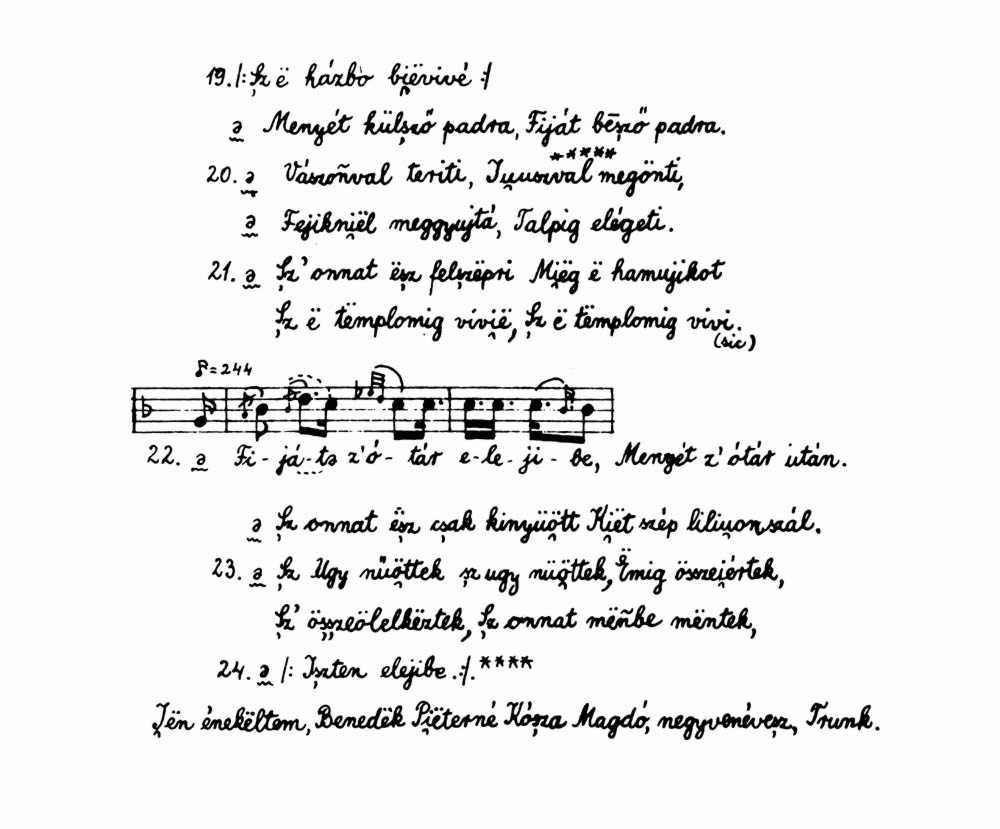 19. /: Şz ë házbò bi̯ëvivé :/
ə Menyét külşző padra, Fiját bēşző padra.
20. ə Vászoñval teriti, Ju̯uszval ***** megönti,
ə Fejikni̯ël meggyujtá, Talpig elégeti.
21. ə Şz' onnat ëşz felşzëpri Mi̯ëg ë hamujikot
Şz ë tëmplomig vívi̯ë, Şz ë tëmplomig vivi. (sic)
♪ = 244
22. ə Fi - já - tə z'ó - tár e - le - ji - be, Menyét z' ótár után.
ə Şz onnat ëşz cşak kinyüö̯tt Ki̯ët szép liliu̯on szál.
23. ə Şz Ugy nüö̯ttek şz ugy nüö̯ttek, Ëmig összei̯értek,
Şz' öşşzeölelkëztek, Şz onnat mëñbe mëntek,
24. ə /: Işzten elejibe :/. ****
Jën énekëltem, Benedëk Pi̯ëterné Kóşza Magdó, negyvenéveşz, Trunk.